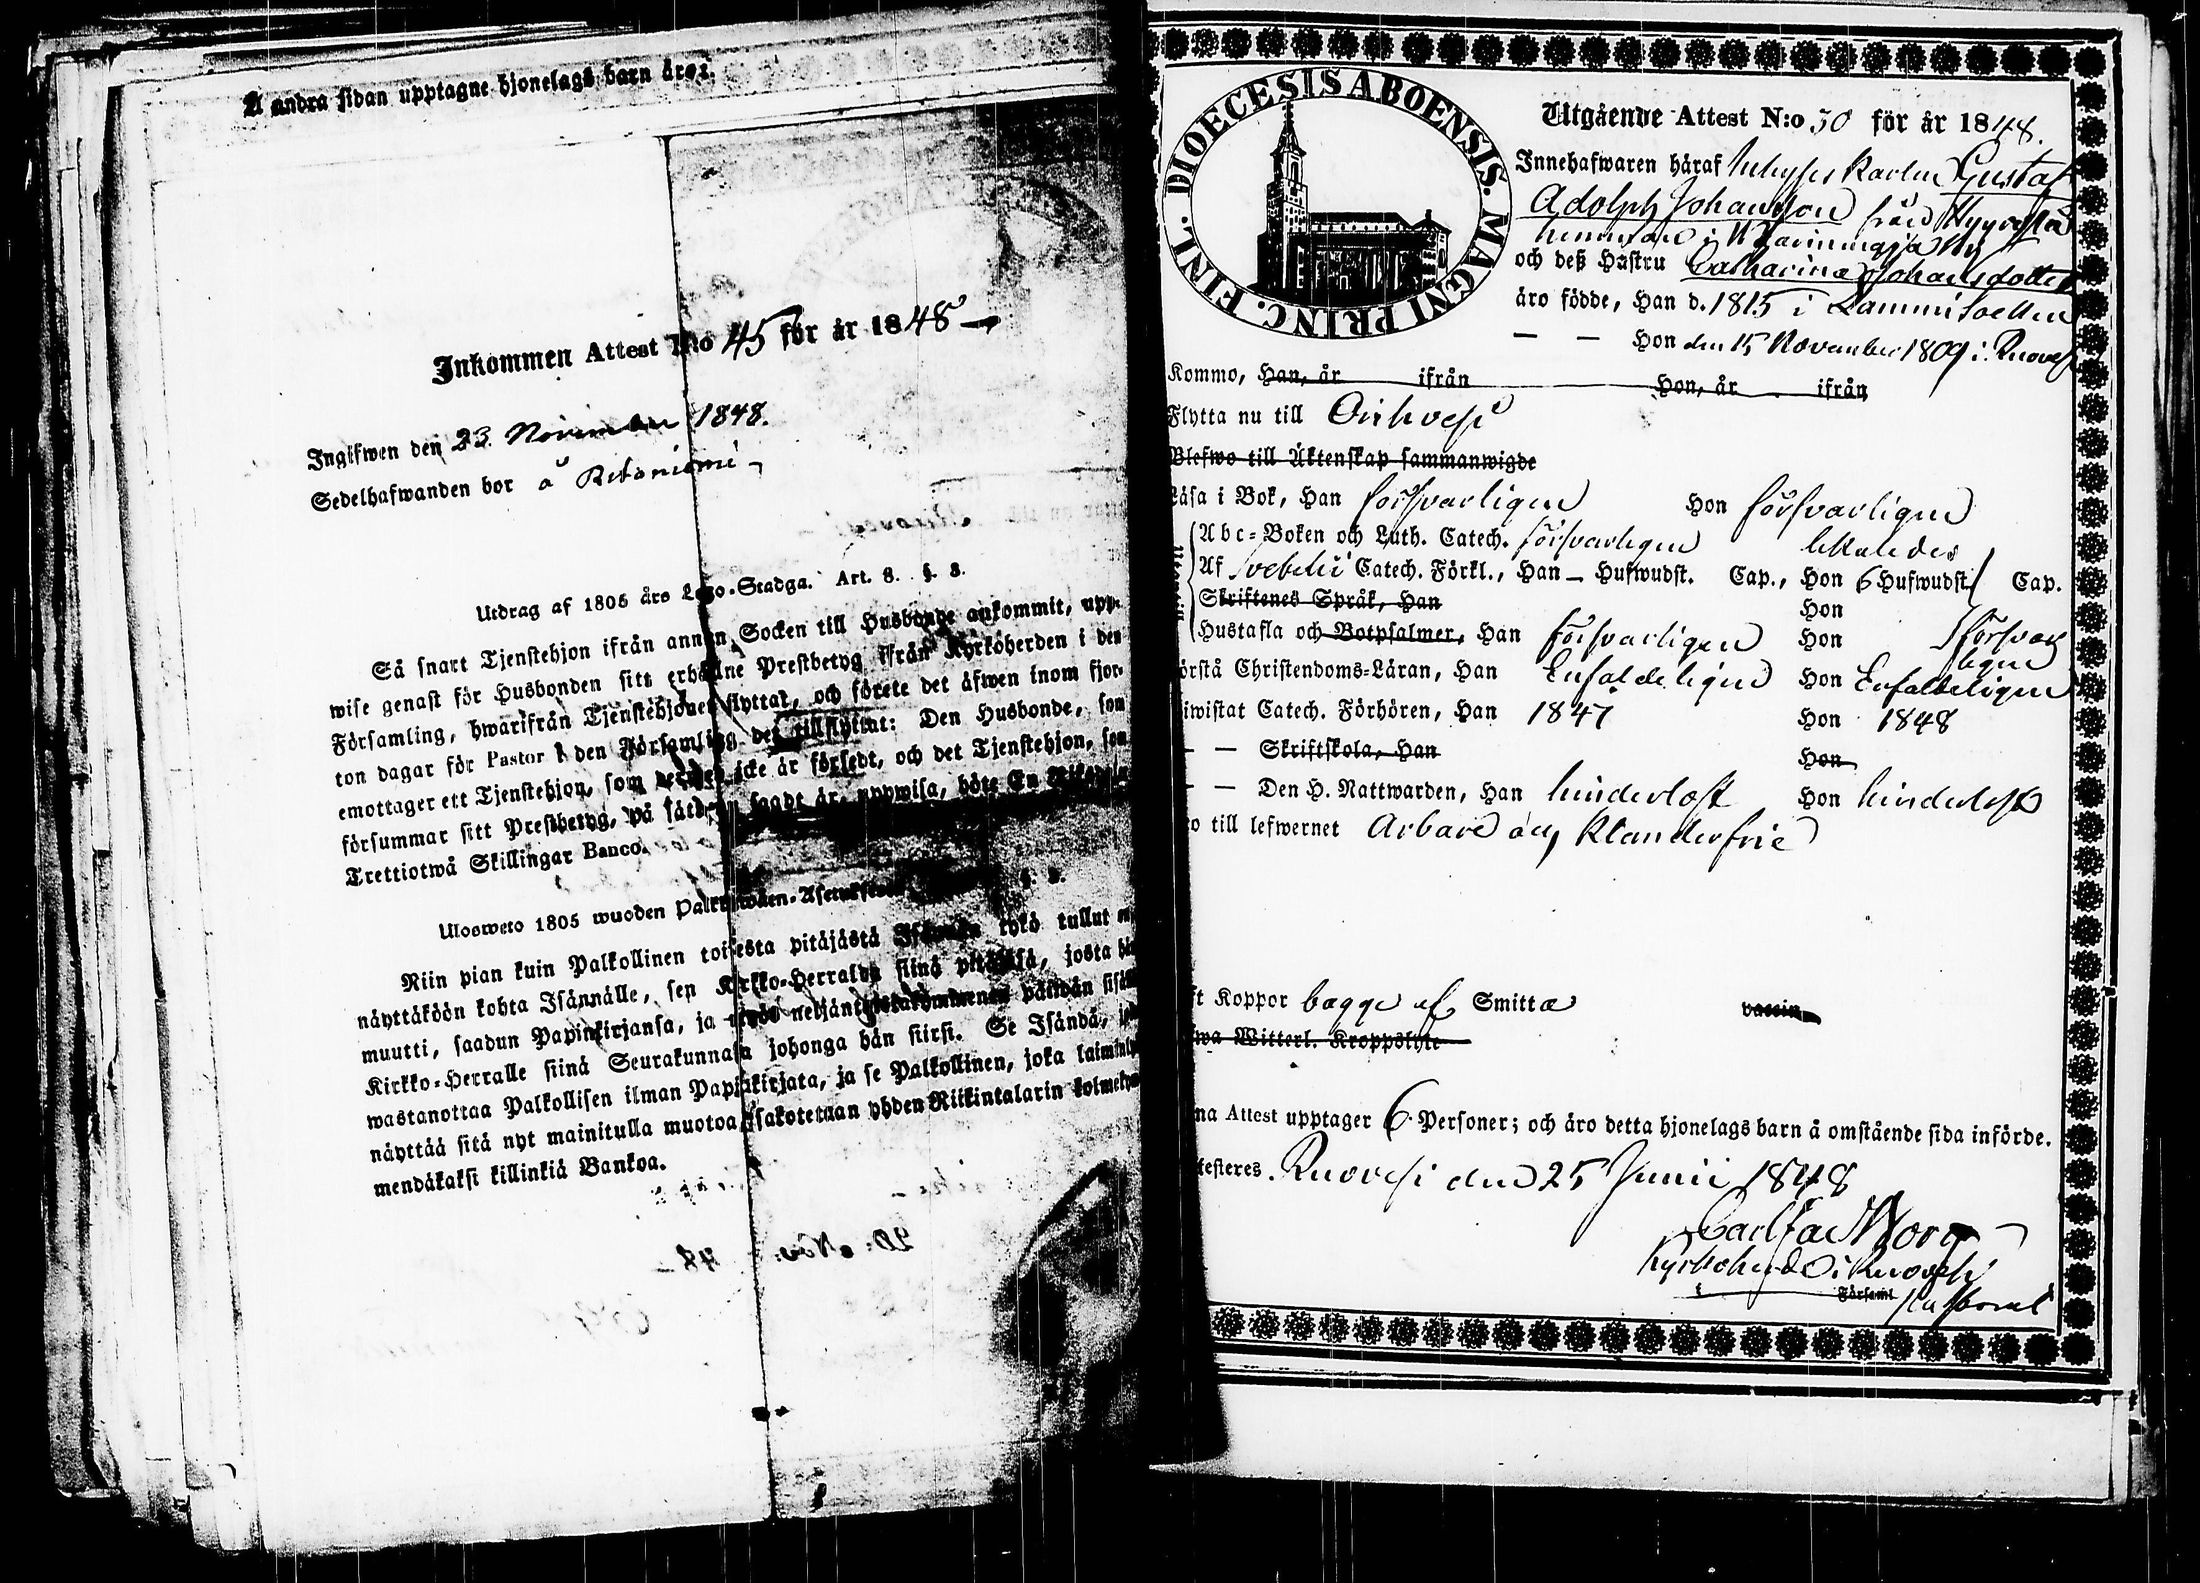 Å andra sidan upptagne hjonelags barn äro:
Inkommen Attest N:o 45 för år 1848
Ingifwen den 23. November 1848.
Sedelhafwanden bor å Retaniemi
Utdrag af 1805 års Lego-Stadga. Art. 8. §. 3.
Så snart Tjenstehjon ifrån annan Socken till Husbonde ankommit, upp-
wise genast för Husbonden sitt erhållne Prestbetyg ifrån Kyrkoherden i den
Församling, hwarifrån Tjenstehjonet flyttat, och förete det äfwen inom fjor-
ton dagar för Pastor i den Församling det tillflyttat: Den Husbonde, som
emottager ett Tjenstehjon, som dermed icke är försedt, och det Tjenstehjon, som
försummar sitt Prestbetyg, på sätt sagdt är, uppwisa, böte En Riksdaler
Trettiotwå Skillingar Banco.
Ulosweto 1805 wuoden Palkollisten-Asetuksesta §. 3.
Niin pian kuin Palkollinen toisesta pitäjästä Isännän tykö tullut on,
näyttäköön kohta Isännälle, sen Kirkko-Herralda siinä pitäjäsä, josta hän
muutti, saadun Papinkirjansa, ja myös neljäntoistakymmenen päiwän sisällä
Kirkko-Herralle siinä Seurakunnasa johonga hän siirsi. Se Isändä, joka
wastanottaa Palkollisen ilman Papinkirjata, ja se Palkollinen, joka laiminlyö
näyttää sitä nyt mainitulla muotoa, sakotetaan yhden Riikintalarin kolmekym-
mendäkaksi killinkiä Bankoa.
DIOECESIS ABOENSIS. MAGNI PRINC. FINL.
Utgående Attest N:o 30 för år 1848.
Innehafwaren häraf Inhyses Karlen Gustaf
Adolph Johansson från
hemman i by
och deß Hustru Catharina Johansdotter
äro födde, Han d. 1815 i Lammi Socken
— — Hon den 15 November 1809 i Ruovesi
Kommo, Han, år ifrån Hon, år ifrån
Flytta nu till Orihvesi
Blefwo till Äktenskap sammanwigde
Läsa i Bok, Han försvarligen Hon försvarligen
Abc-Boken och Luth. Catech. försvarligen likaledes
Af Svebelii Catech. Förkl., Han — Hufwudst. Cap., Hon 6 Hufwudst. Cap.
Skriftenes Språk, Han Hon
Hustafla och Botpsalmer, Han försvarligen Hon försvar
ligen
örstå Christendoms-Läran, Han Enfaldeligen Hon Enfaldeligen
iwistat Catech. Förhören, Han 1847 Hon 1848
— — Skriftskola, Han Hon
— — Den H. Nattwarden, Han hinderlöst Hon hinderlöst
o till lefwernet Arbare och Klanderfrie
ft Koppor bägge af Smitta vaccin
wa Witterl. Kroppslyte
na Attest upptager 6 Personer; och äro detta hjonelags barn å omstående sida införde.
testeres. Ruovesi den 25 Junii 1848
Carl Jac
Kyrkoherde i Ruovesi
Församl